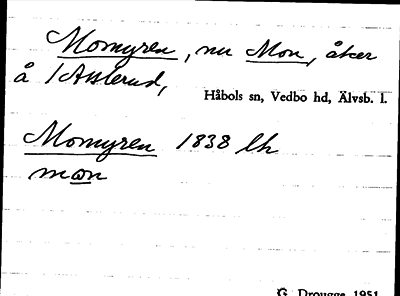 Momyren, nu Mon, åker
å 1 Asslerud,
Håbols sn, Vedbo hd, Älvsb. l.
Momyren 1838 lh
mon
G. Drougge 1951